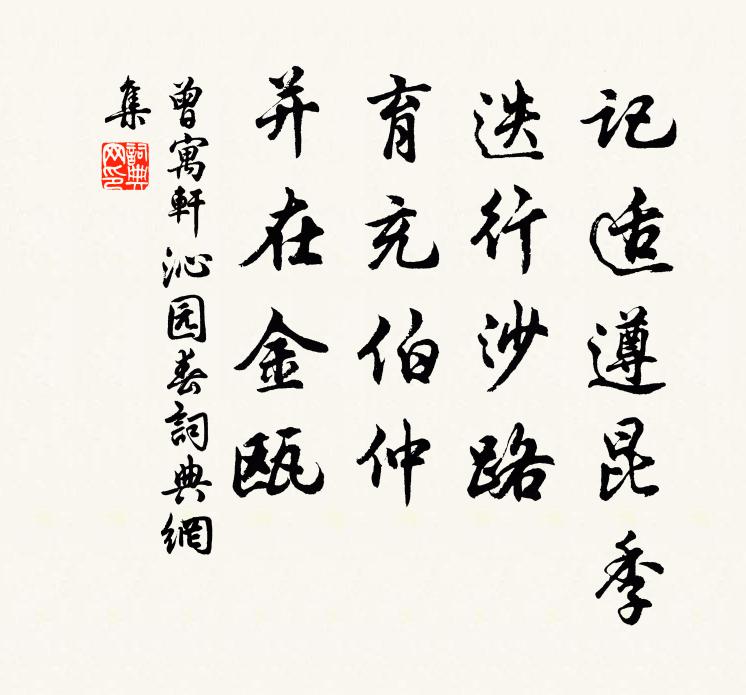 记适遵昆季
迭行沙路
育充伯仲
并在金瓯
曾寓軒沁园春詞典網
集
詞典
网印